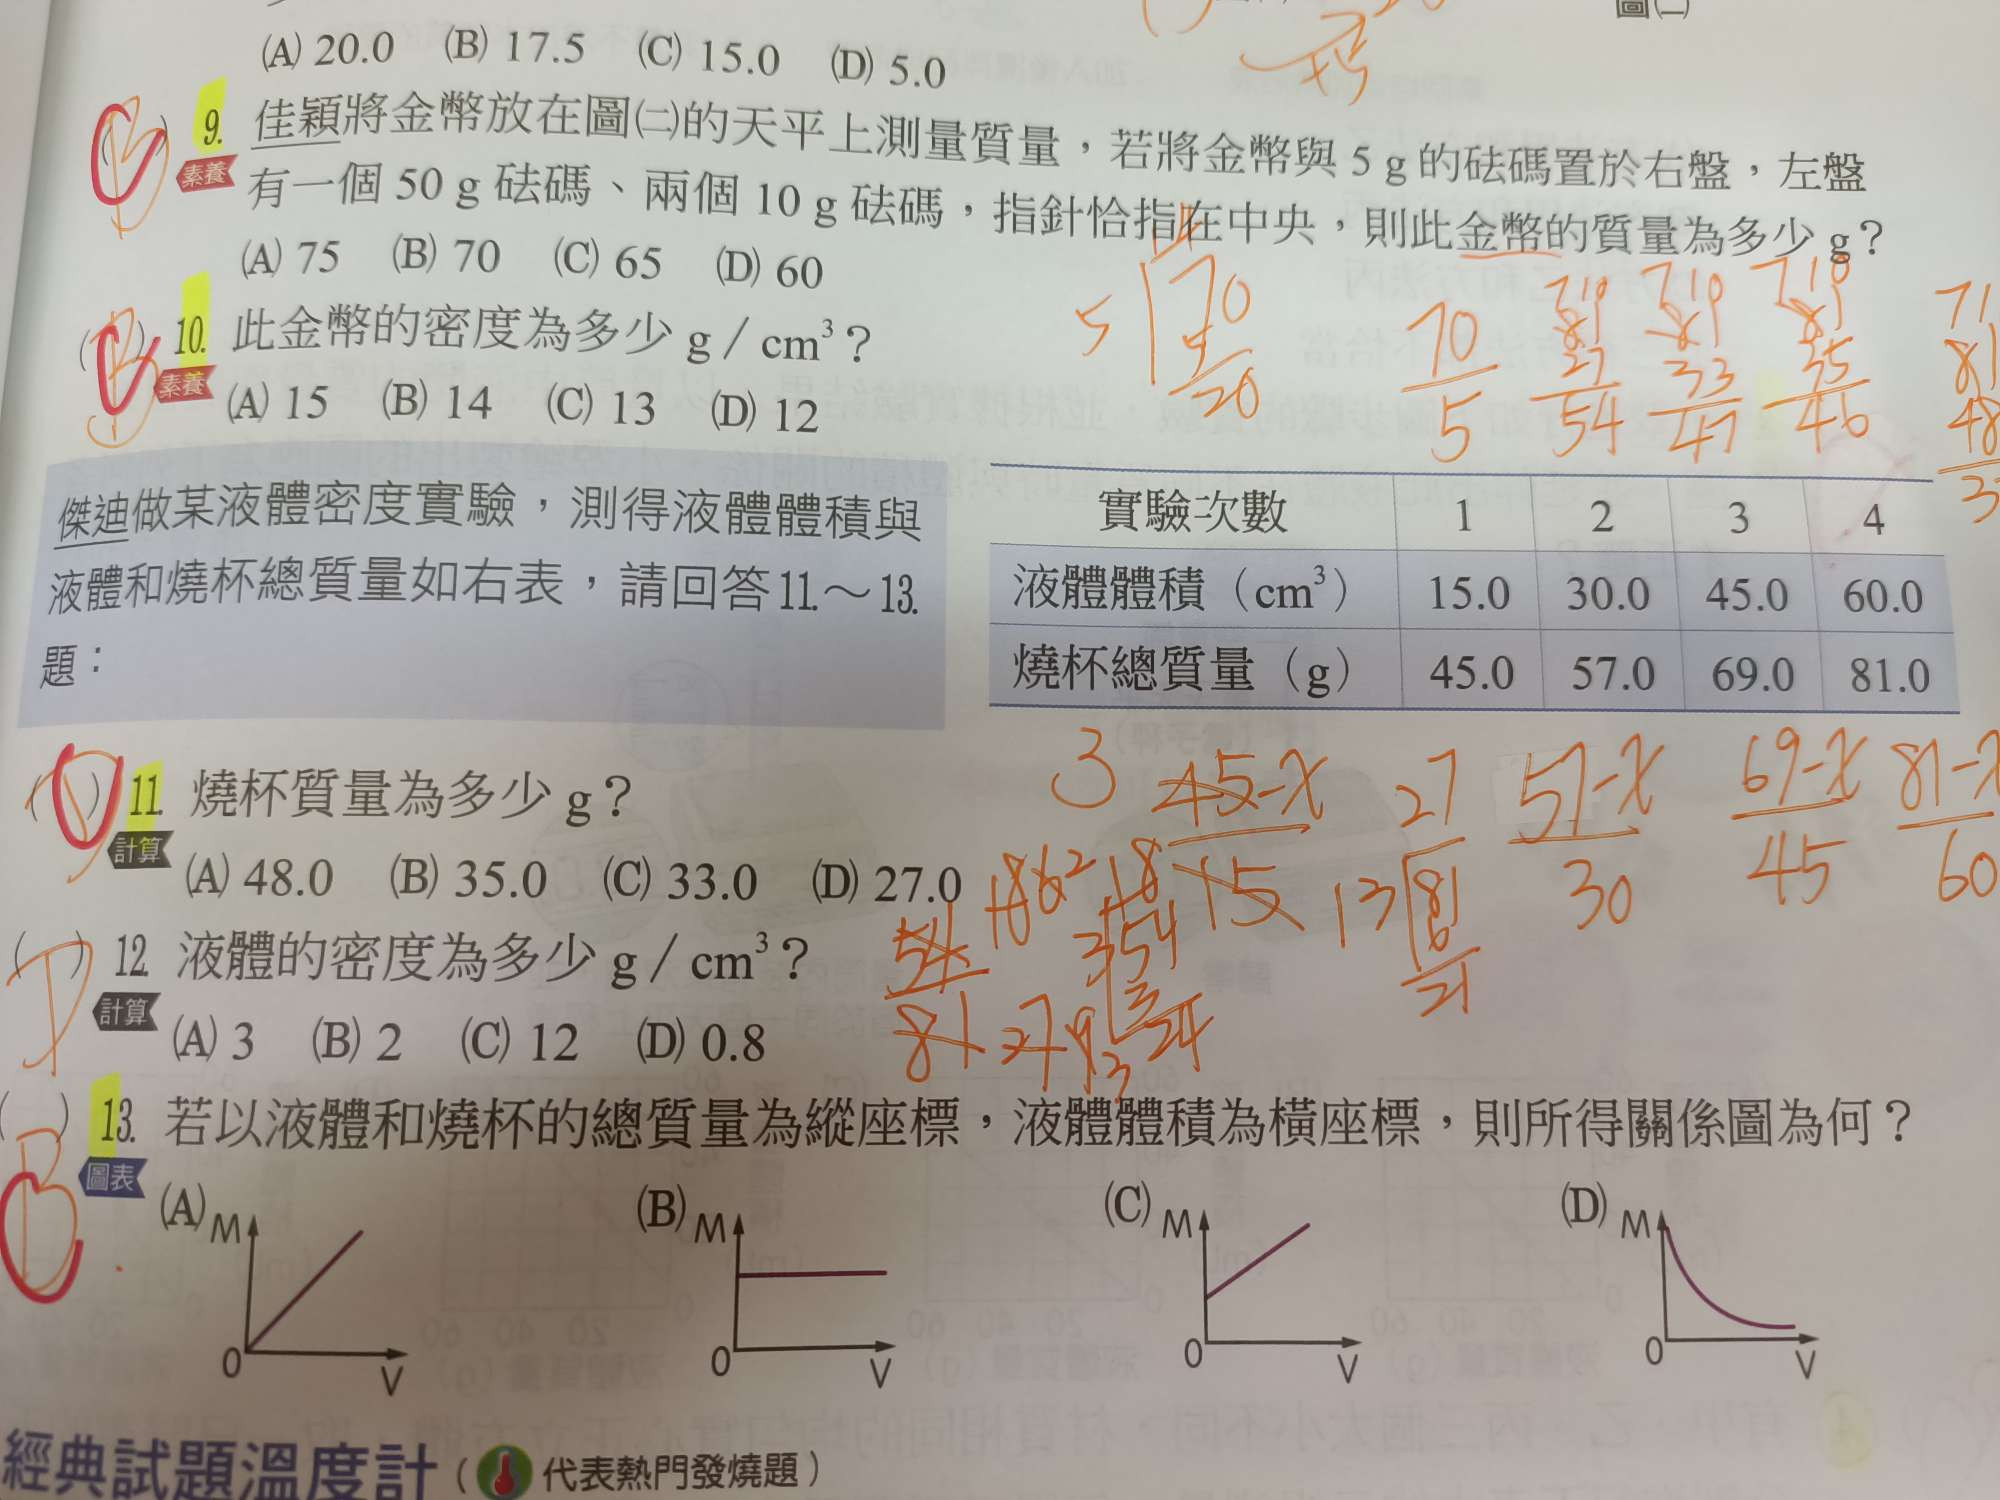 圖㈡
(A) 20.0 (B) 17.5 (C) 15.0 (D) 5.0
9. 佳穎將金幣放在圖㈡的天平上測量質量，若將金幣與 5 g 的砝碼置於右盤，左盤
素養
有一個 50 g 砝碼、兩個 10 g 砝碼，指針恰指在中央，則此金幣的質量為多少 g？
(A) 75 (B) 70 (C) 65 (D) 60
10. 此金幣的密度為多少 g／cm³？
素養
(A) 15 (B) 14 (C) 13 (D) 12
5 70 20
70 5
54 47 46
傑迪做某液體密度實驗，測得液體體積與
液體和燒杯總質量如右表，請回答11.～13.
題：
實驗次數 1 2 3 4
液體體積（cm³） 15.0 30.0 45.0 60.0
燒杯總質量（g） 45.0 57.0 69.0 81.0
3 45-x 15 27 57-x 30 69-x 45 81-x 60
( ) 11. 燒杯質量為多少 g？
計算
(A) 48.0 (B) 35.0 (C) 33.0 (D) 27.0
( ) 12. 液體的密度為多少 g／cm³？
計算
(A) 3 (B) 2 (C) 12 (D) 0.8
( ) 13. 若以液體和燒杯的總質量為縱座標，液體體積為橫座標，則所得關係圖為何？
圖表
B
(A) M 0 V (B) M 0 V (C) M 0 V (D) M 0 V
經典試題溫度計（代表熱門發燒題）